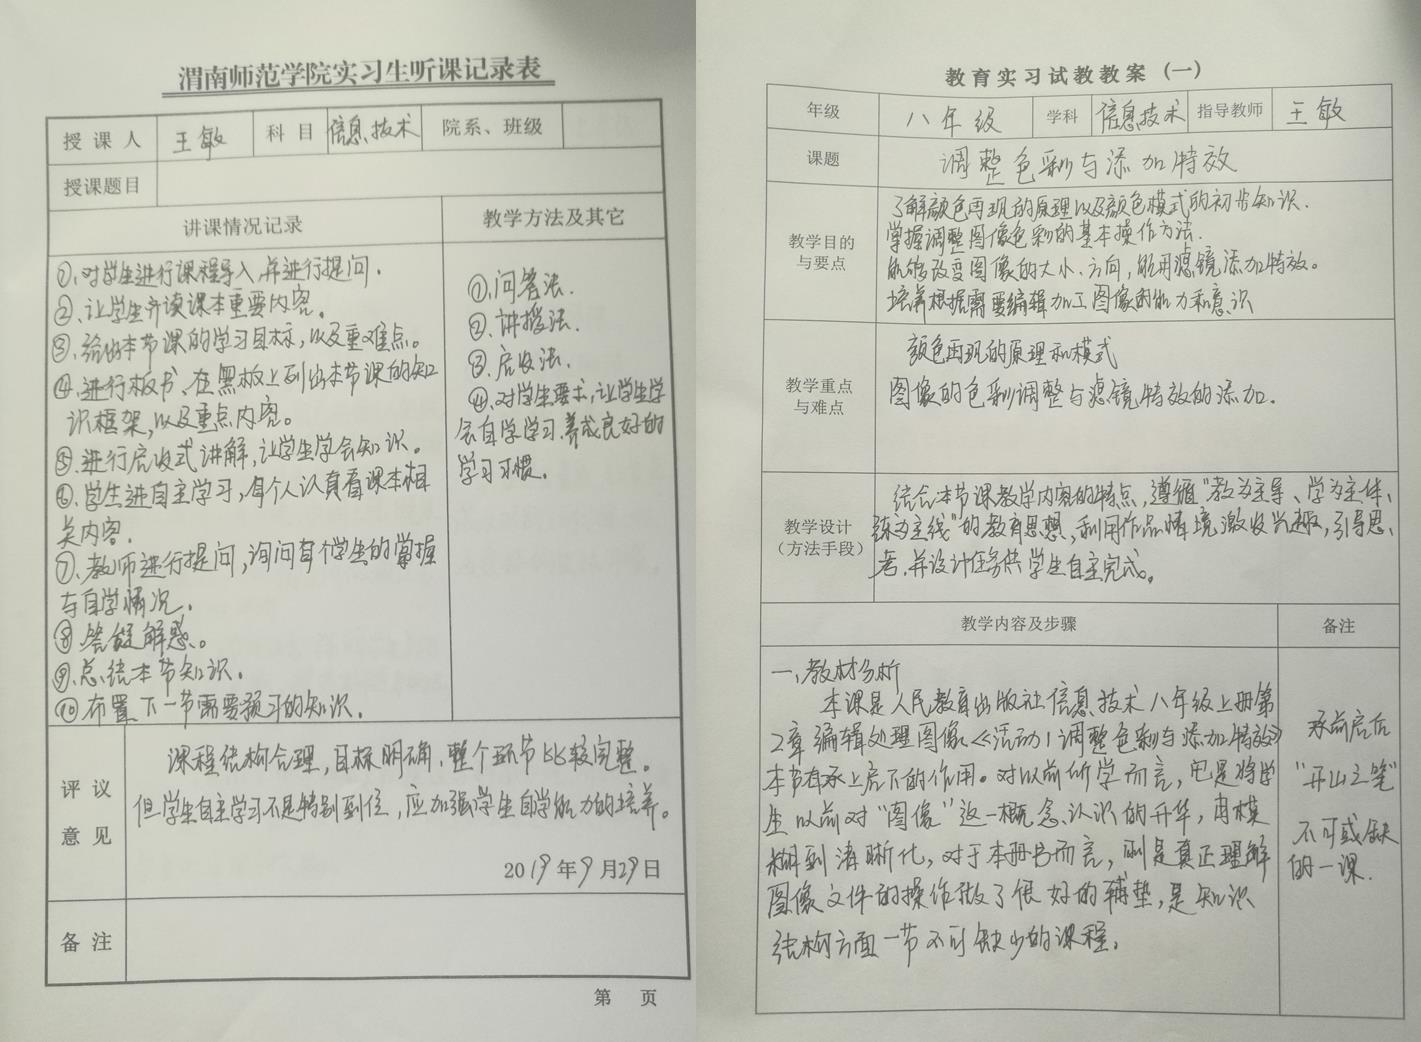 渭南师范学院实习生听课记录表
授课人 王敏 科目 信息技术 院系、班级
授课题目
讲课情况记录 教学方法及其它
①、对学生进行课程导入,并进行提问.
②、让学生齐读课本重要内容。
③、给出本节课的学习目标,以及重难点。
④、进行板书、在黑板上列出本节课的知
识框架,以及重点内容。
⑤、进行启发式讲解,让学生学会知识。
⑥、学生进自主学习,每个人认真看课本相
关内容.
⑦、教师进行提问,询问每个学生的掌握
与自学情况.
⑧、答疑解惑。
⑨、总结本节知识.
⑩、布置下一节需要预习的知识.
①、问答法.
②、讲授法.
③、启发法.
④、对学生要求,让学生学
会自学学习,养成良好的
学习习惯.
评议意见
课程结构合理,目标明确,整个环节比较完整。
但学生自主学习不是特别到位,应加强学生自学能力的培养。
2019年9月29日
备注
第 页
教育实习试教教案(一)
年级 八年级 学科 信息技术 指导教师 王敏
课题 调整色彩与添加特效
教学目的
与要点
了解颜色再现的原理以及颜色模式的初步知识.
掌握调整图像色彩的基本操作方法.
能够改变图像的大小、方向,能用滤镜添加特效。
培养根据需要编辑加工图像的能力和意识
教学重点
与难点
颜色再现的原理和模式
图像的色彩调整与滤镜特效的添加.
教学设计
(方法手段)
结合本节课教学内容的特点,遵循“教为主导、学为主体、
练为主线”的教育思想,利用作品情境激发兴趣,引导思
考,并设计任务供学生自主完成。
教学内容及步骤 备注
一、教材分析
本课是人民教育出版社信息技术八年级上册第
2章编辑处理图像《活动1调整色彩与添加特效》
本节有承上启下的作用。对以前所学而言,它是将学
生以前对“图像”这一概念、认识的升华,由模
糊到清晰化,对于本册书而言,则是真正理解
图像文件的操作做了很好的铺垫,是知识
结构方面一节不可缺少的课程.
承前启后
“开山之笔”
不可或缺
的一课.